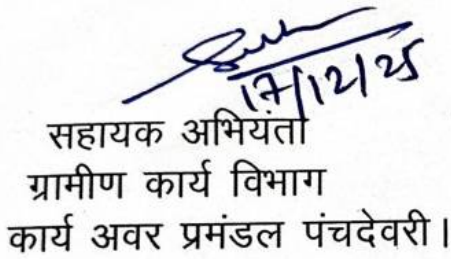 17/12/25
सहायक अभियंता
ग्रामीण कार्य विभाग
कार्य अवर प्रमंडल पंचदेवरी।